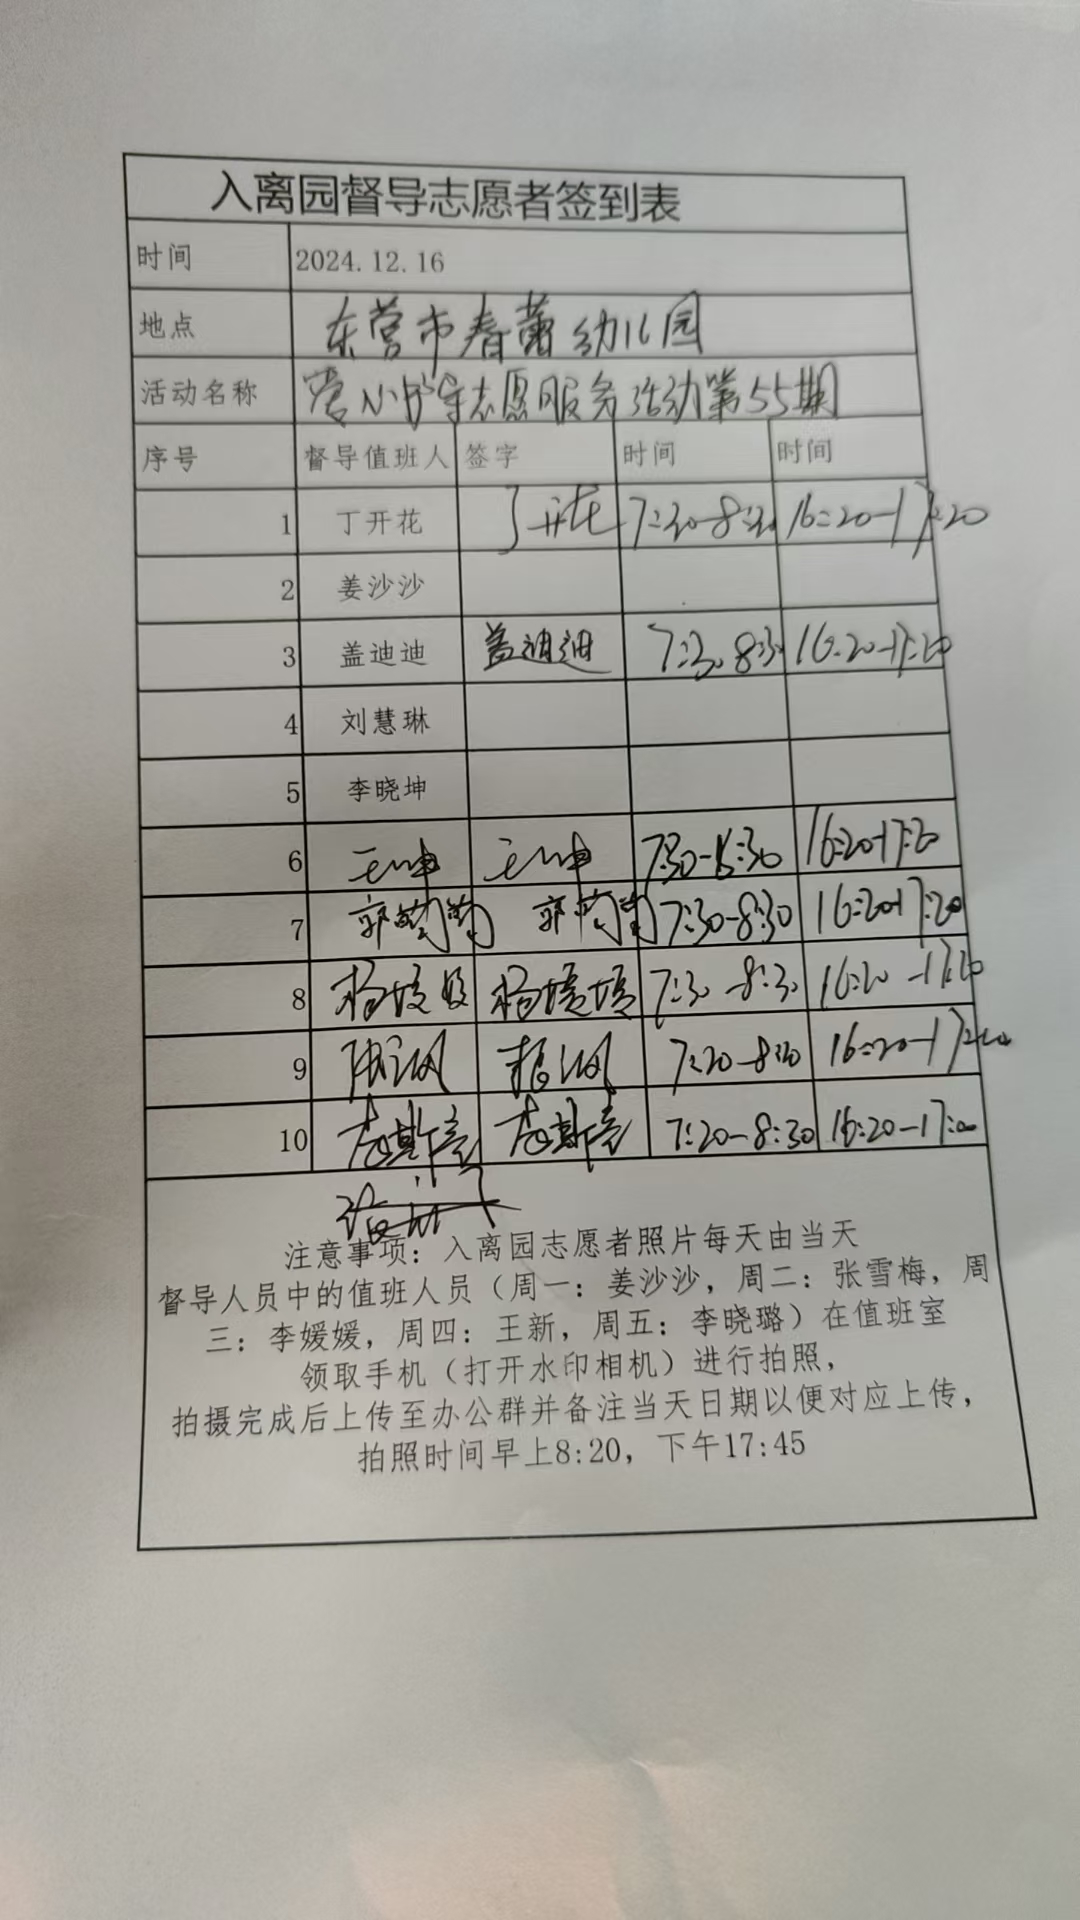 入离园督导志愿者签到表
时间 2024.12.16
地点 东营市春蕾幼儿园
活动名称 营小护导志愿服务活动第55期
序号 督导值班人 签字 时间 时间
1 丁开花 丁开花 7:30-8:30 16:20-17:20
2 姜沙沙
3 盖迪迪 盖迪迪 7:30 8:30 16:20-17:20
4 刘慧琳
5 李晓坤
6 7:30-8:30 16:20-17:20
7 郭菊菊 郭菊菊 7:30-8:30 16:20-17:20
8 杨媛媛 杨媛媛 7:30-8:30 16:20-17:20
9 7:20-8:20 16:20-17:20
10 7:20-8:30 16:20-17:00
注意事项：入离园志愿者照片每天由当天
督导人员中的值班人员（周一：姜沙沙，周二：张雪梅，周
三：李媛媛，周四：王新，周五：李晓璐）在值班室
领取手机（打开水印相机）进行拍照，
拍摄完成后上传至办公群并备注当天日期以便对应上传，
拍照时间早上8:20，下午17:45